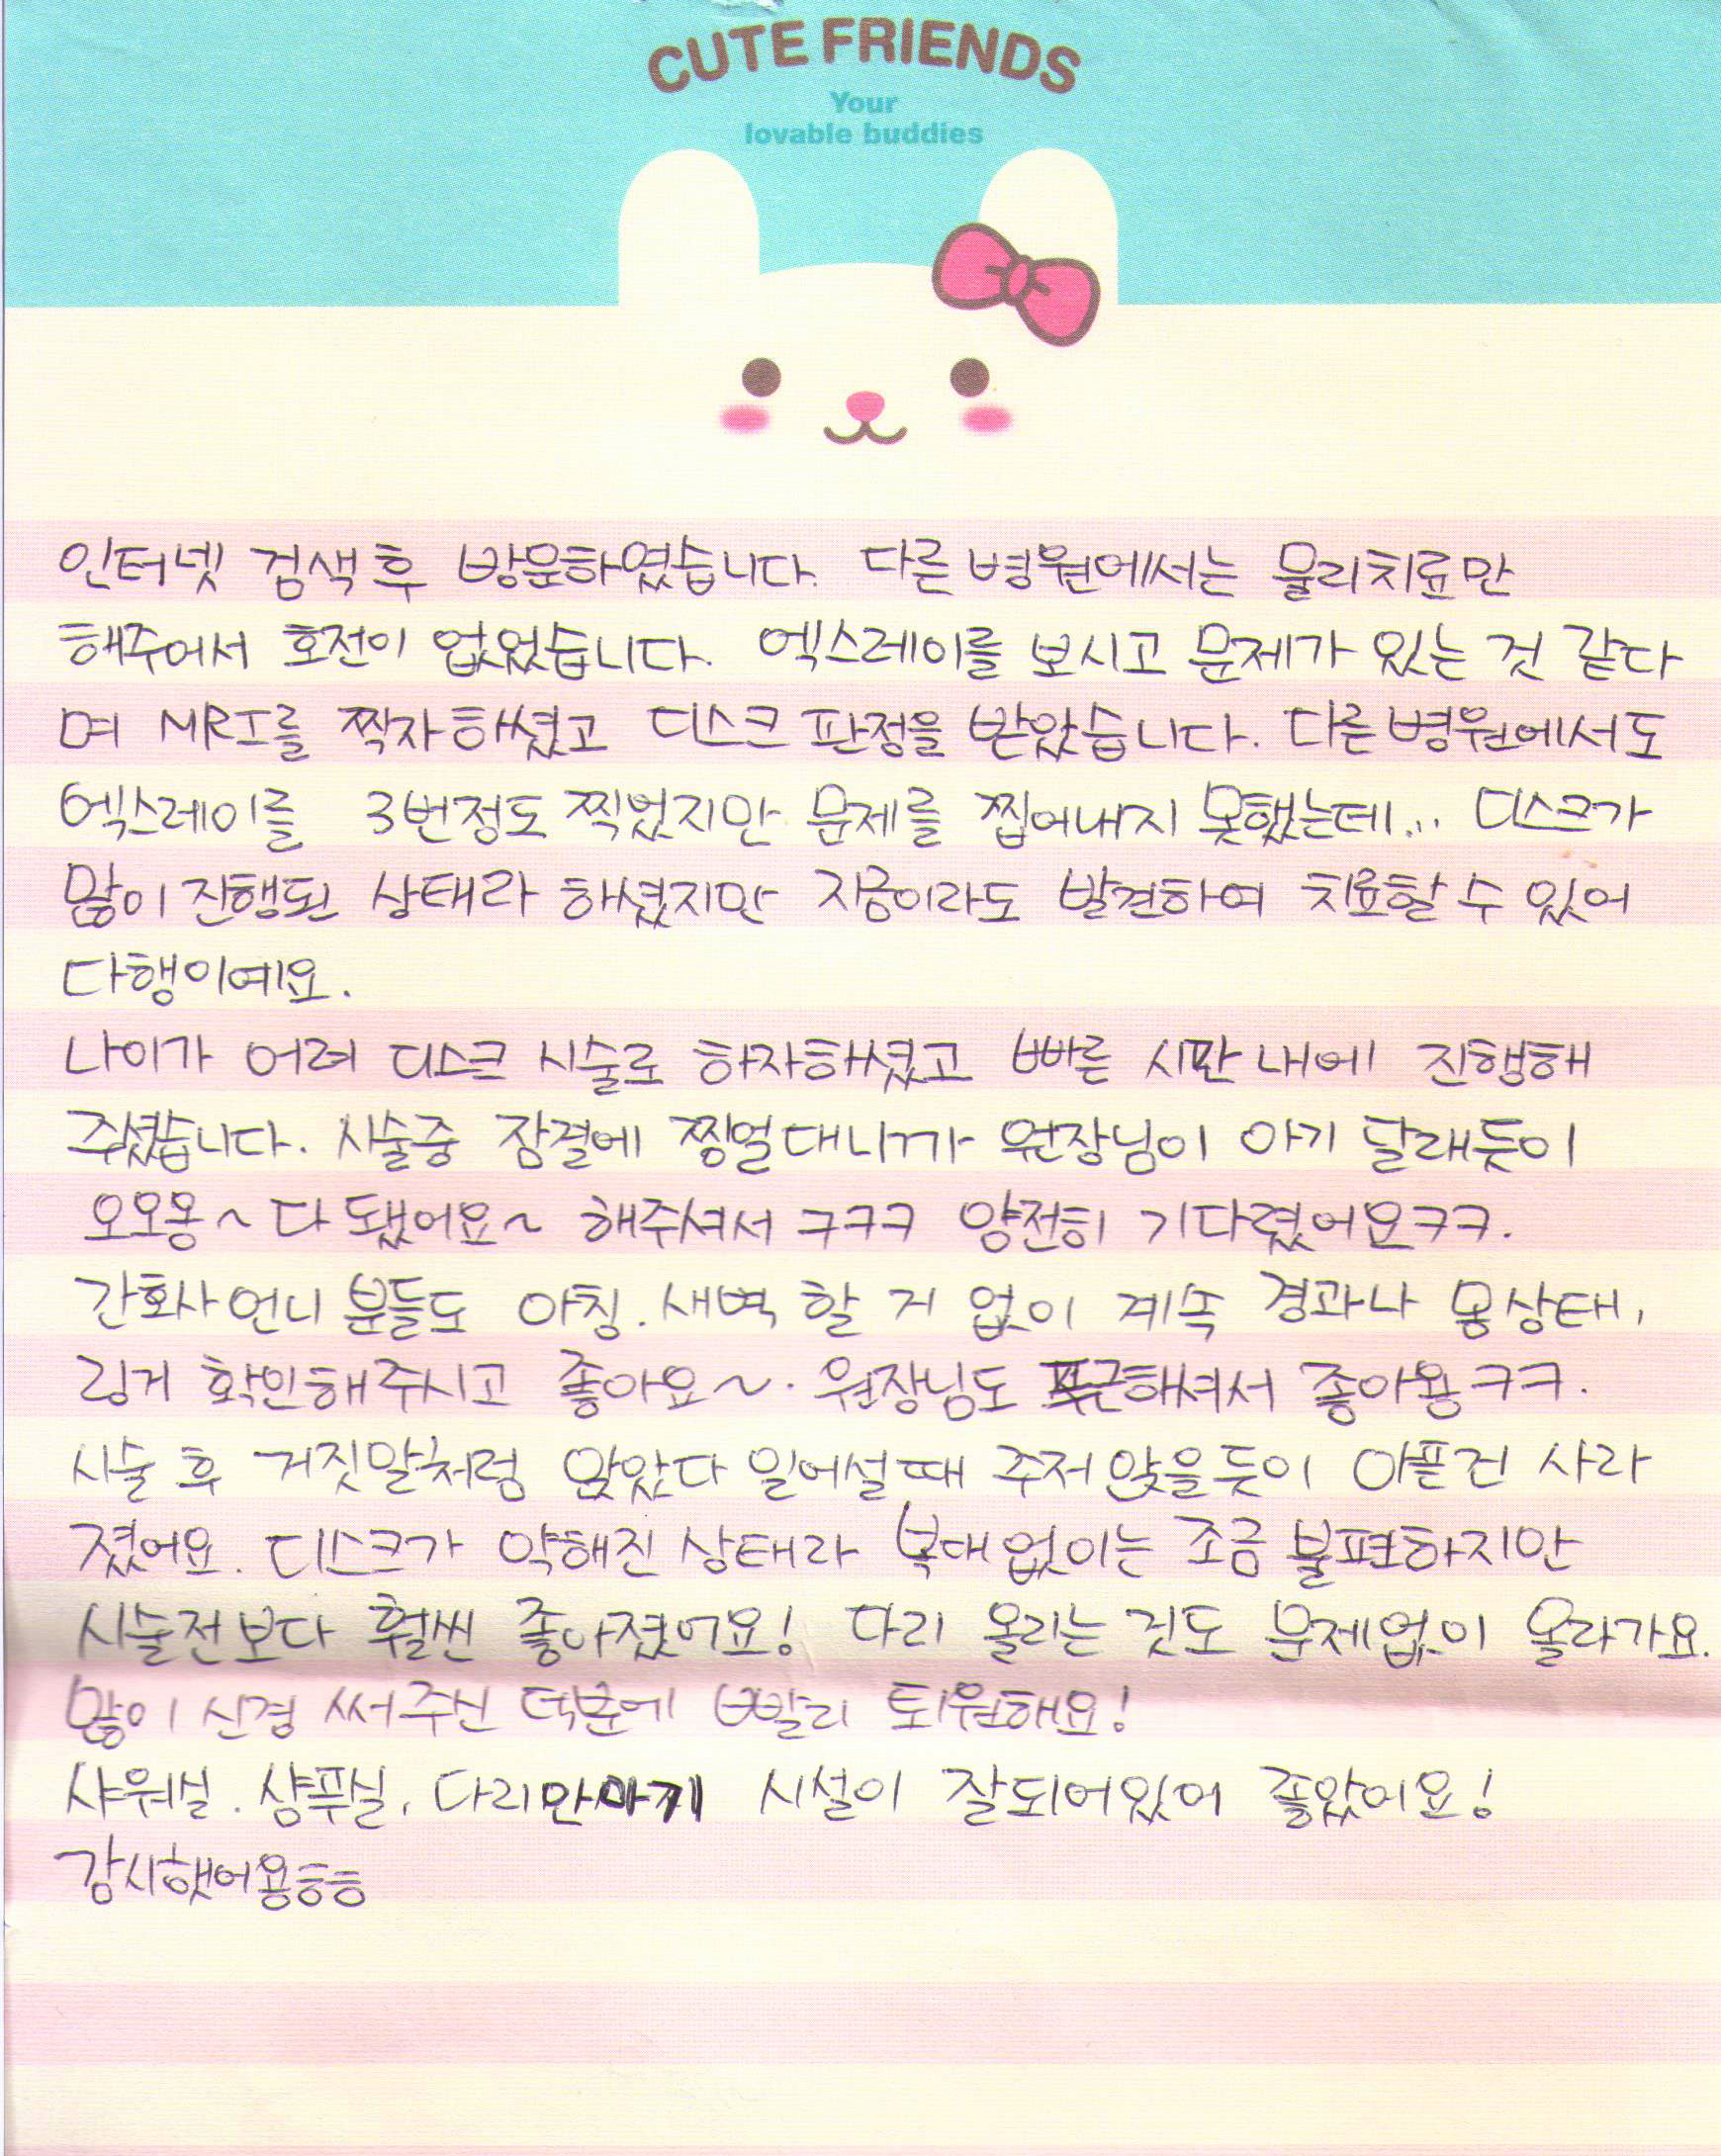 CUTE FRIENDS
Your
lovable buddies
인터넷 검색 후 방문하였습니다. 다른 병원에서는 물리치료만
해주어서 호전이 없었습니다. 엑스레이를 보시고 문제가 있는 것 같다
며 MRI를 찍자 하셨고 디스크 판정을 받았습니다. 다른 병원에서도
엑스레이를 3번정도 찍었지만 문제를 찝어내지 못했는데... 디스크가
많이 진행된 상태라 하셨지만 지금이라도 발견하여 치료할 수 있어
다행이예요.
나이가 어려 디스크 시술로 하자하셨고 빠른 시간 내에 진행해
주셨습니다. 시술중 잠결에 찡얼대니까 원장님이 아기 달래듯이
오오옹~ 다 됐어요~ 해주셔서 ㅋㅋㅋ 얌전히 기다렸어요ㅋㅋ.
간호사 언니 분들도 아침.새벽 할 거 없이 계속 경과나 몸상태,
링거 확인해주시고 좋아요~. 원장님도 푸근해셔서 좋아용ㅋㅋ.
시술 후 거짓말처럼 앉았다 일어설때 주저앉을듯이 아픈건 사라
졌어요. 디스크가 약해진 상태라 복대없이는 조금 불편하지만
시술전보다 훨씬 좋아졌어요! 다리 올리는 것도 문제없이 올라가요.
많이 신경 써주신 덕분에 빨리 퇴원해요!
샤워실. 샴푸실, 다리안마기 시설이 잘되어있어 좋았어요!
감사했어용ㅎㅎ